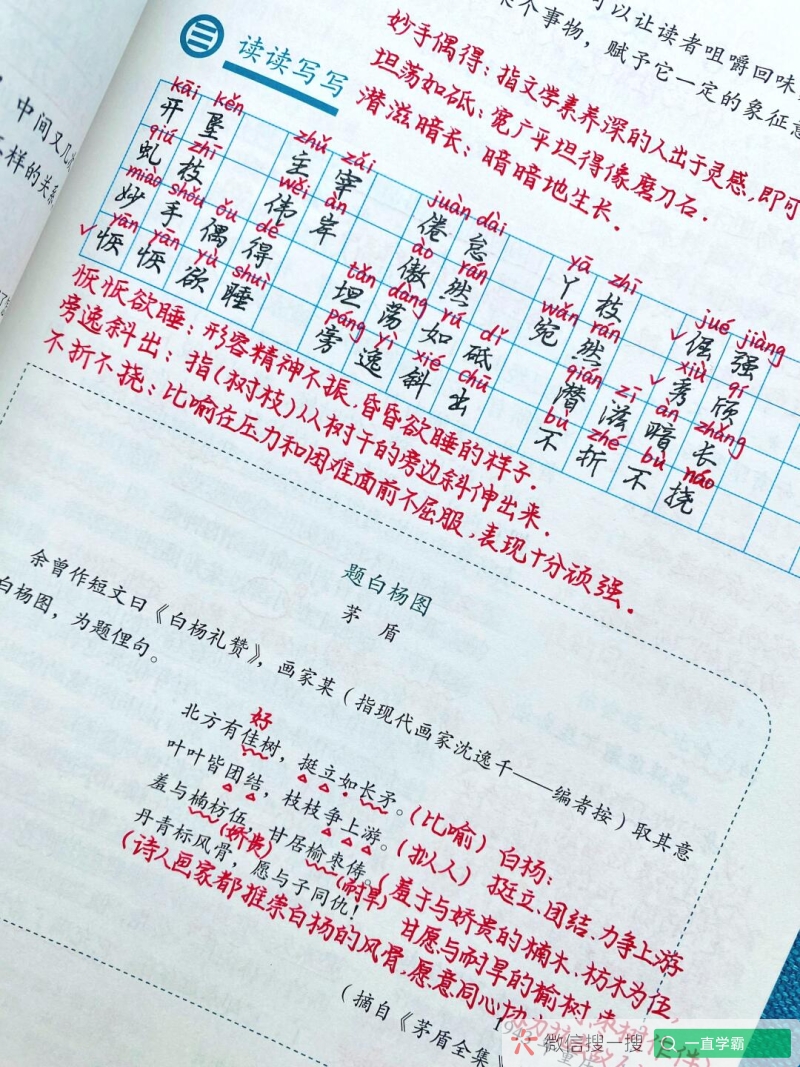 可以让读者咀嚼回味
个事物，赋予它一定的象征意
中间又几
样的关系
妙手偶得：指文学素养深的人出于灵感，即可
坦荡如砥：宽广平坦得像磨刀石．
潜滋暗长：暗暗地生长．
三 读读写写
kāi kěn zhǔ zǎi juàn dài yā zhī jué jiàng
开垦 主宰 倦怠 丫枝 倔强
qiú zhī wěi àn ào rán wǎn rán xiù qí
虬枝 伟岸 傲然 宛然 秀颀
miào shǒu ǒu dé tǎn dàng rú dǐ qián zī àn zhǎng
妙手偶得 坦荡如砥 潜滋暗长
yān yān yù shuì páng yì xié chū bù zhé bù náo
恹恹欲睡 旁逸斜出 不折不挠
恹恹欲睡：形容精神不振，昏昏欲睡的样子．
旁逸斜出：指(树枝)从树干的旁边斜伸出来．
不折不挠：比喻在压力和困难面前不屈服，表现十分顽强．
题白杨图
茅 盾
余曾作短文曰《白杨礼赞》，画家某（指现代画家沈逸千——编者按）取其意
白杨图，为题俚句。
好
北方有佳树，挺立如长矛。(比喻) 白杨：
叶叶皆团结，枝枝争上游。(拟人) 挺立、团结、力争上游
羞与楠枋伍，甘居榆枣俦。(羞于与娇贵的楠木、枋木为伍，
(娇贵) (耐旱) 甘愿与耐旱的榆树
丹青标风骨，愿与子同仇！
(诗人画家都推崇白杨的风骨，愿意同心协
（摘自《茅盾全集
微信搜一搜 一直学霸